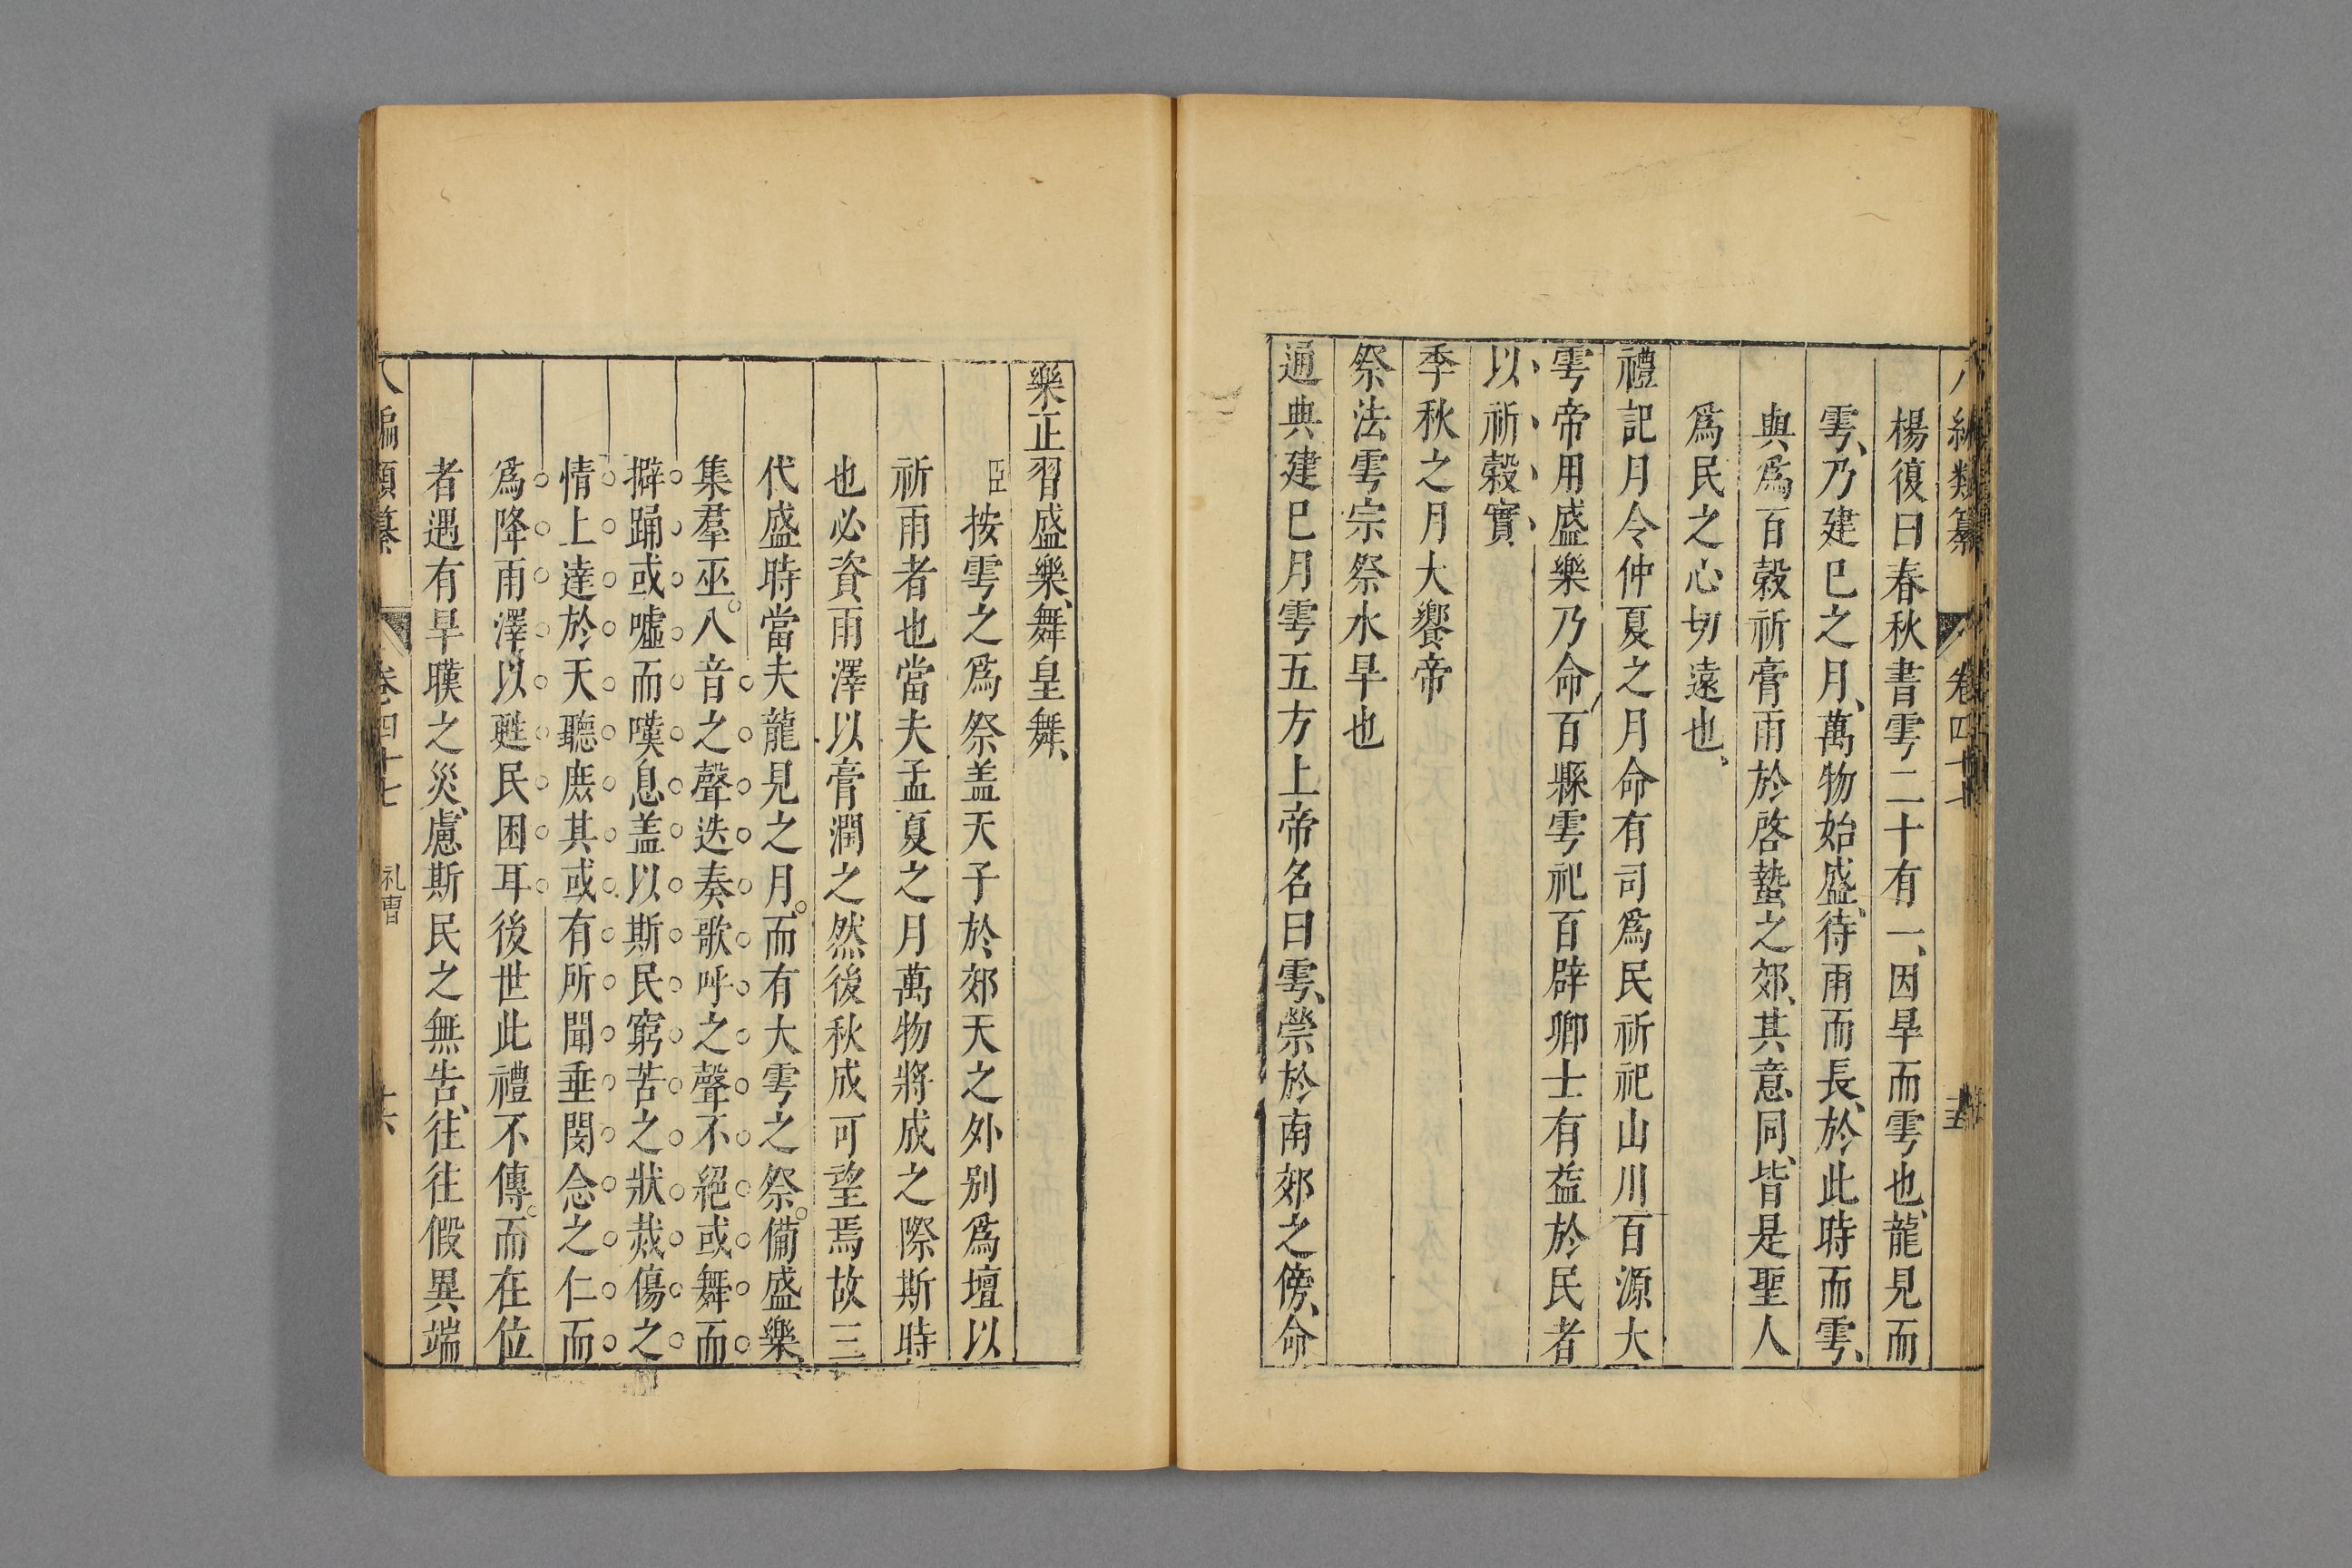 八編類纂 卷四十七
楊復曰春秋書雩二十有一、因旱而雩也、龍見而
雩、乃建巳之月、萬物始盛、待雨而長、於此時而雩、
與爲百穀祈膏雨於啓蟄之郊、其意同、皆是聖人
爲民之心切遠也、
禮記月令仲夏之月命有司爲民祈祀山川百源大
雩帝用盛樂乃命百縣雩祀百辟卿士有益於民者
以祈穀實
季秋之月大饗帝
祭法雩宗祭水旱也
通典建巳月雩五方上帝名曰雩、禜於南郊之傍、命
樂正習盛樂、舞皇舞、
臣按雩之爲祭盖天子於郊天之外别爲壇以
祈雨者也當夫孟夏之月萬物將成之際斯時
也必資雨澤以膏潤之然後秋成可望焉故三
代盛時當夫龍見之月。而有大雩之祭。備盛樂、
集羣巫。八音之聲迭奏歌呼之聲不絕或舞而
擗踊或噓而嘆息盖以斯民窮苦之狀烖傷之
情上達於天聽庶其或有所聞垂閔念之仁而
爲降雨澤以甦民困耳後世此禮不傳。而在位
者遇有旱暵之災、慮斯民之無告、往往假異端
八編類纂 卷四十七 礼曹 十六